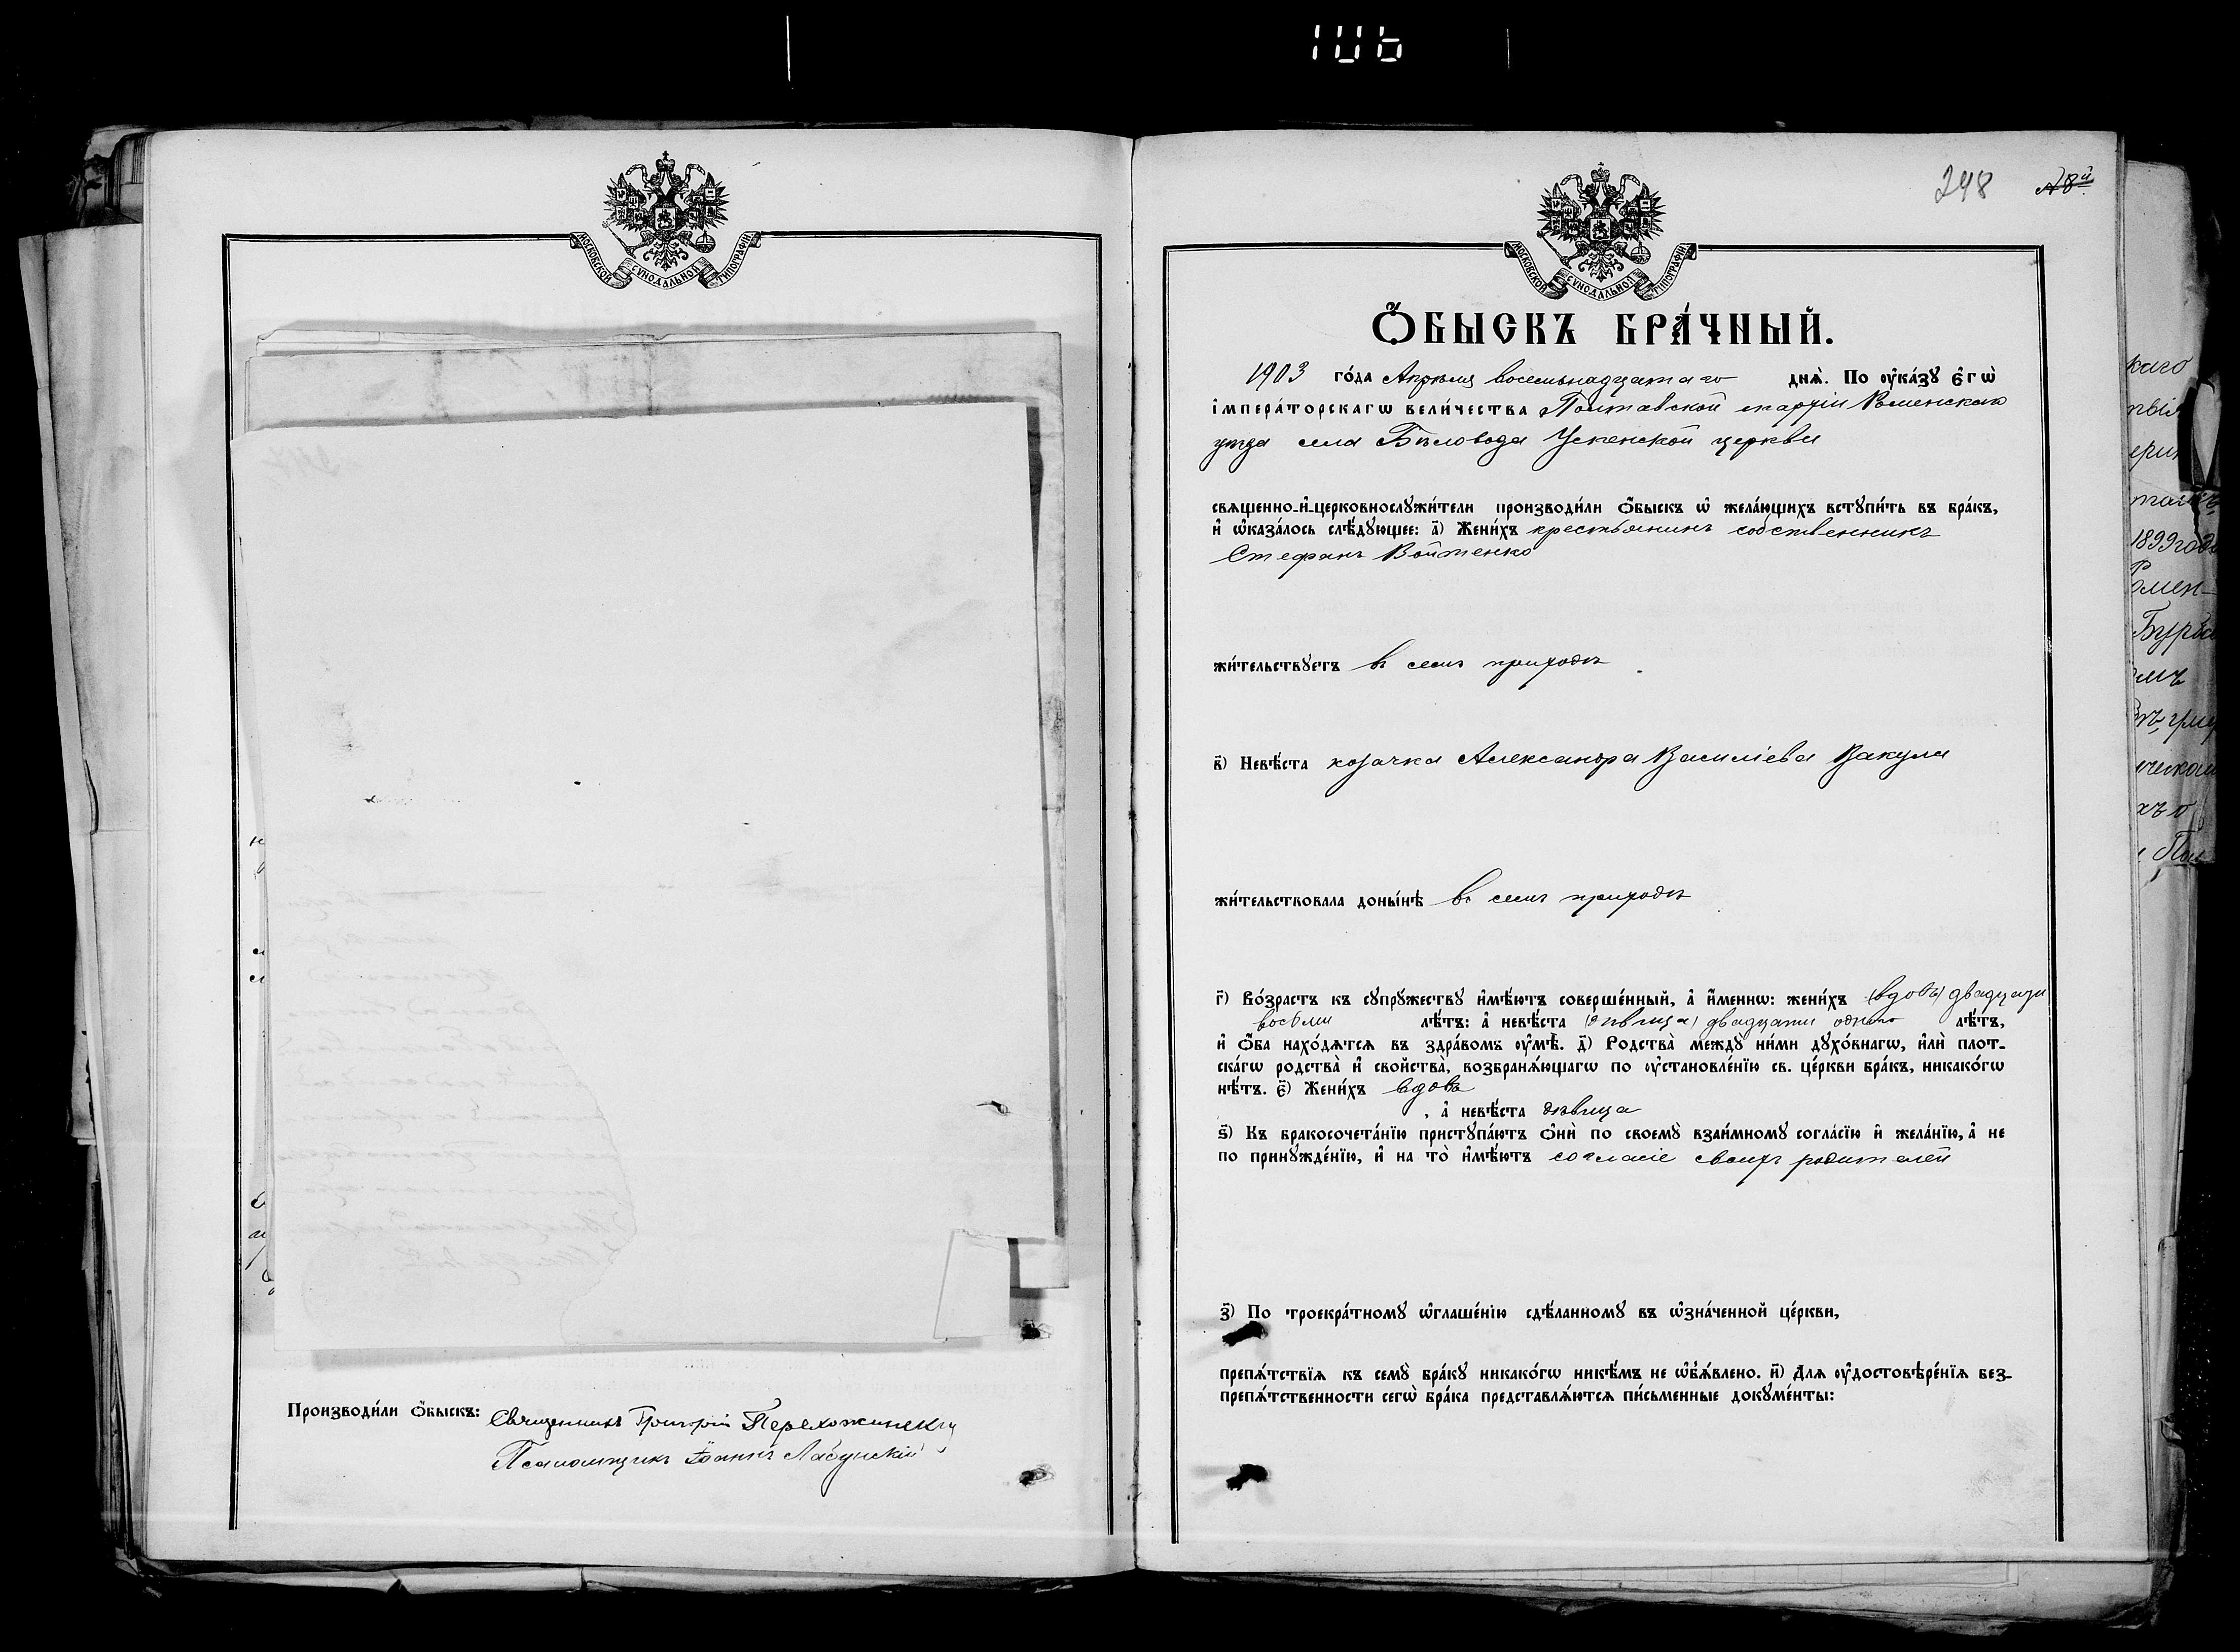 106
МОСКОВСКОЙ СѴНОДАЛЬНОЙ ТИПОГРАФІИ
Производи́ли ѻ҆́быскъ: Священникъ Григорій
Псаломщикъ Іоаннъ Лабунскій
248
МОСКОВСКОЙ СѴНОДАЛЬНОЙ ТИПОГРАФІИ
Ѻ҆́БЫСКЪ БРА́ЧНЫЙ.
1903 го́да Апрѣля восемьнадцатаго дня̀. По ᲂу҆ка́зꙋ є҆гѡ̀
і҆мпера́торскагѡ вели́чества Полтавской епархіи Роменскаго
уѣзда села Бѣловода Успенской церкви
свѧщенно-и҆-церковнослꙋжи́тели производи́ли ѻ҆́быскъ ѡ҆ жела́ющихъ встꙋпи́ть въ бра́къ,
и҆ ѡ҆каза́лось слѣ́дꙋющее: а҃) Жени́хъ крестьянинъ собственникъ
Стефанъ Войтенко
жи́тельствꙋетъ въ семъ приходѣ
в҃) Невѣ́ста козачка Александра Василіева Вакула
жи́тельствовала доны́нѣ въ семъ приходѣ
г҃) Во́зрастъ къ сꙋпрꙋ́жествꙋ и҆мѣ́ютъ соверше́нный, а҆ и҆́меннѡ: жени́хъ (вдовъ) двадцати
восьми лѣ́тъ: а҆ невѣ́ста (дѣвица) двадцати одного лѣ́тъ,
и҆ ѻ҆́ба нахо́дятся въ здра́вомъ ᲂу҆мѣ̀. д҃) Родства̀ междꙋ̀ ни́ми дꙋхо́внагѡ, и҆лѝ плот-
ска́гѡ родства̀ и҆ свойства̀, возбраня́ющагѡ по ᲂу҆становле́нїю св. це́ркви бра́къ, никако́гѡ
нѣ́тъ. є҃) Жени́хъ вдовъ
, а҆ невѣ́ста дѣвица
ѕ҃) Къ бракосочета́нїю пристꙋпа́ютъ ѻ҆нѝ по своемꙋ̀ взаи́мномꙋ согла́сїю и҆ жела́нїю, а҆ не
по принꙋжде́нїю, и҆ на то̀ и҆мѣ́ютъ согласіе своихъ родителей
з҃) По троекра́тномꙋ ѡ҆глаше́нїю сдѣ́ланномꙋ въ ѡ҆зна́ченной це́ркви,
препя́тствїя къ семꙋ̀ бра́кꙋ никако́гѡ никѣ́мъ не ѡ҆бъѧ́влено. и҃) Для ᲂу҆достовѣре́нїя без-
препя́тственности сегѡ̀ бра́ка представля́ются пи́сьменные докꙋме́нты:
1899